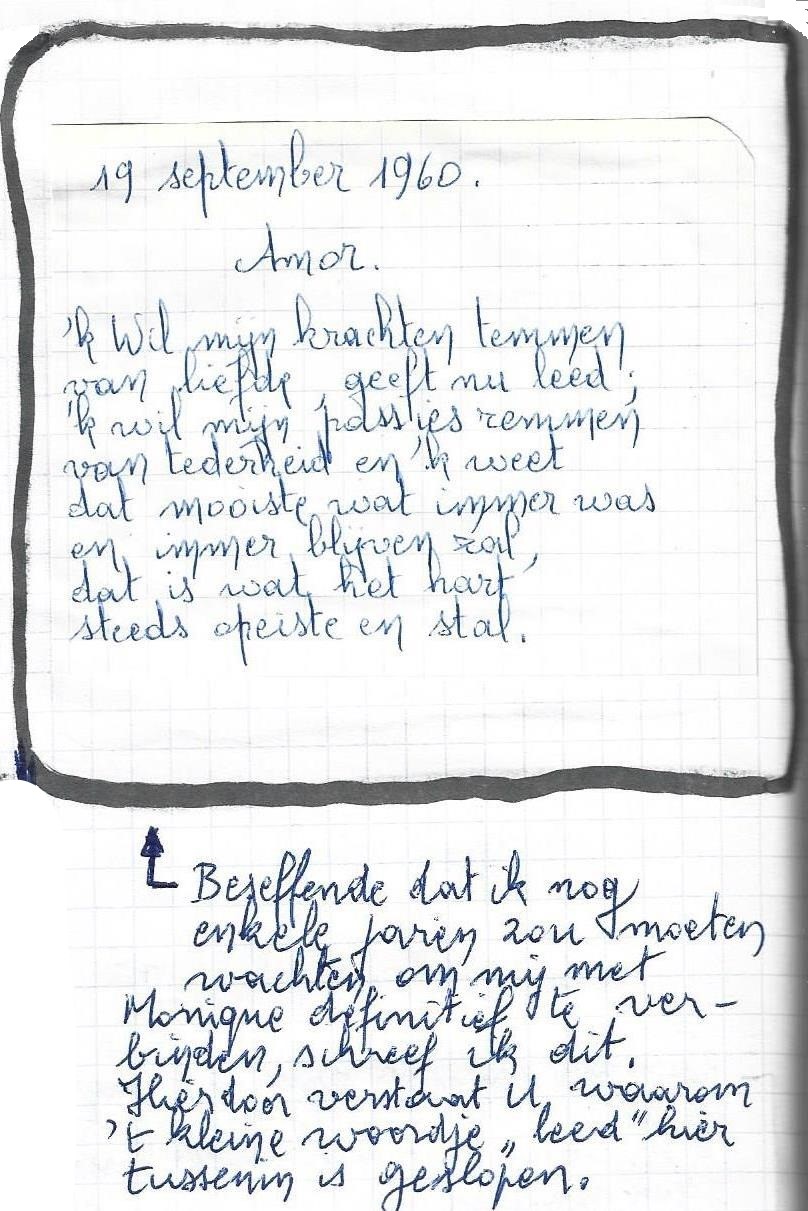 19 september 1960.
Amor.
'k Wil mijn krachten temmen
van liefde, geeft nu leed;
'k wil mijn passies remmen
van tederheid en 'k weet
dat mooiste wat immer was
en immer blijven zal,
dat is wat het hart
steeds opeiste en stal.
Beseffende dat ik nog
enkele jaren zou moeten
wachten om mij met
Monique definitief te ver-
binden, schreef ik dit.
Hierdoor verstaat U waarom
't kleine woordje „leed" hier
tussenin is geslopen.